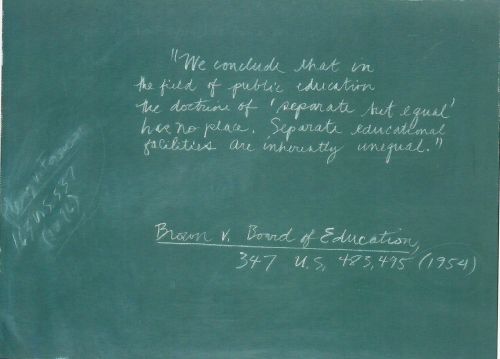 "We conclude that in
the field of public education
the doctrine of 'separate but equal'
has no place. Separate educational
facilities are inherently unequal."
U.S. 537
Brown v. Board of Education,
347 U.S. 483, 495 (1954)